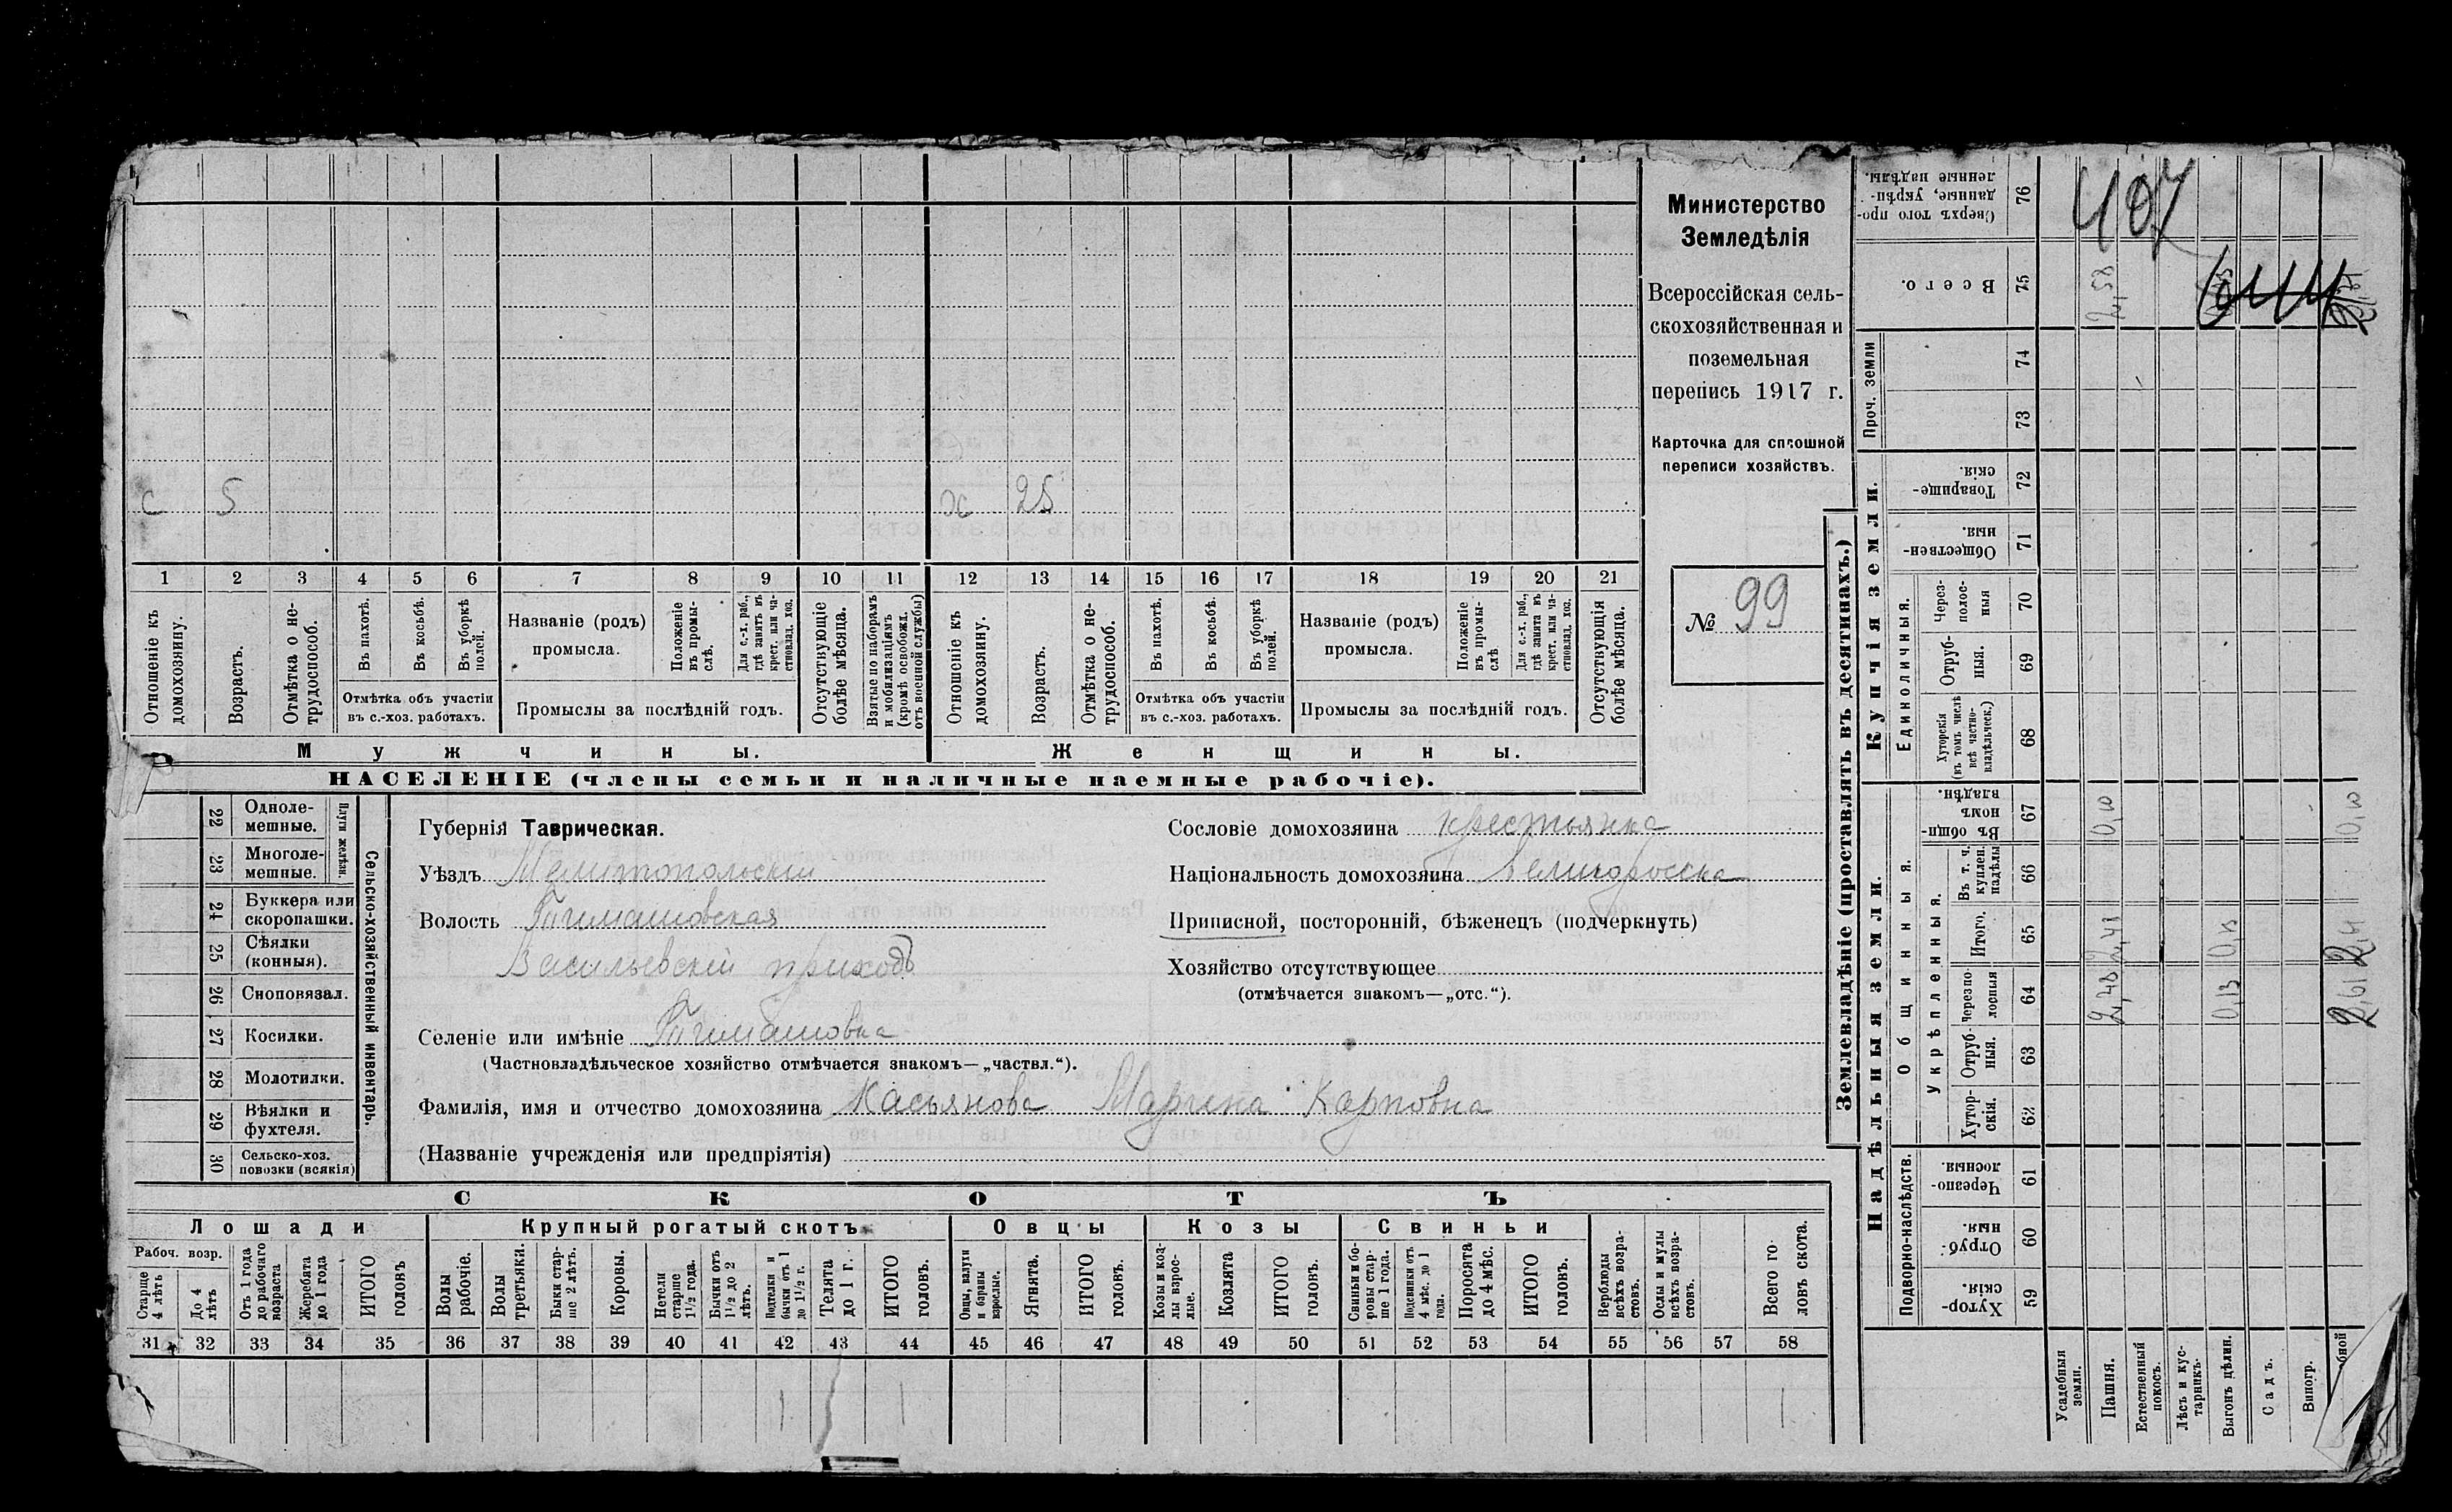 Министерство
Земледѣлія
Всероссійская сель-
скохозяйственная и
поземельная
перепись 1917 г.
Карточка для сплошной
переписи хозяйствъ.
№ 99
с 5 ж 25
1 2 3 4 5 6 7 8 9 10 11 12 13 14 15 16 17 18 19 20 21
Отношеніе къ домохозяину.
Возрастъ.
Отмѣтка о не-трудоспособ.
Въ пахотѣ.
Въ косьбѣ.
Въ уборкѣ полей.
Отмѣтка объ участіи
въ с.-хоз. работахъ.
Названіе (родъ)
промысла.
Положеніе въ промы-слѣ.
Для с.-х. раб., гдѣ занятъ въ крест. или ча-стновлад. хоз.
Промыслы за послѣдній годъ.
Отсутствующіе болѣе мѣсяца.
Взятые по наборамъ и мобилизаціямъ (кромѣ освобожд. отъ военной службы)
Отношеніе къ домохозяину.
Возрастъ.
Отмѣтка о не-трудоспособ.
Въ пахотѣ.
Въ косьбѣ.
Въ уборкѣ полей.
Отмѣтка объ участіи
въ с.-хоз. работахъ.
Названіе (родъ)
промысла.
Положеніе въ промы-слѣ
Для с.-х. раб., гдѣ занята въ крест. или ча-стновлад. хоз.
Промыслы за послѣдній годъ.
Отсутствующія болѣе мѣсяца.
Мужчины. Женщины.
НАСЕЛЕНІЕ (члены семьи и наличные наемные рабочіе).
22 Одноле-мешные.
23 Многоле-мешные.
Плуги желѣзн.
24 Буккера или скоропашки.
25 Сѣялки (конныя).
26 Сноповязал.
27 Косилки.
28 Молотилки.
29 Вѣялки и фухтеля.
30 Сельско-хоз. повозки (всякія)
Сельско-хозяйственный инвентарь.
Губернія Таврическая.
Уѣздъ Мелитопольскій
Волость Тимашовская
Васильевскій приходъ
Селеніе или имѣніе Тимашовка
(Частновладѣльческое хозяйство отмѣчается знакомъ—„частвл.“).
Фамилія, имя и отчество домохозяина Касьянова Марина Карповна
(Названіе учрежденія или предпріятія)
Сословіе домохозяина крестьянка
Національность домохозяина великоросска
Приписной, посторонній, бѣженецъ (подчеркнуть)
Хозяйство отсутствующее
(отмѣчается знакомъ—„отс.“).
СКОТЪ
Лошади Крупный рогатый скотъ Овцы Козы Свиньи
Рабоч. возр.
Старше 4 лѣтъ
До 4 лѣтъ
Отъ 1 года до рабочаго возраста
Жеребята до 1 года
ИТОГО головъ
Волы рабочіе.
Волы третьяки.
Быки стар-ше 2 лѣтъ.
Коровы.
Нетели старше 1½ года.
Бычки отъ 1½ до 2 лѣтъ.
Подтелки и бычки отъ 1 до 1½ г.
Телята до 1 г.
ИТОГО головъ.
Овцы, валухи и бараны взрослые.
Ягнята.
ИТОГО головъ.
Козы и коз-лы взрос-лые.
Козлята
ИТОГО головъ.
Свиньи и бо-ровы стар-ше 1 года.
Подсвинки отъ 4 мѣс. до 1 года.
Поросята до 4 мѣс.
ИТОГО головъ.
Верблюды всѣхъ возра-стовъ.
Ослы и мулы всѣхъ возра-стовъ.
Всего го-ловъ скота.
31 32 33 34 35 36 37 38 39 40 41 42 43 44 45 46 47 48 49 50 51 52 53 54 55 56 57 58
1 1 1
Землевладѣніе (проставлять въ десятинахъ.)
407
76 Сверхъ того про-данные, укрѣп-ленные надѣлы.
75 Всего. 2,58
Проч. земли
74
73
Купчія земли.
72 Товарище-скія.
71 Обществен-ныя.
Единоличныя.
70 Через-полос-ныя
69 Отруб-ныя.
68 Хуторскія (въ томъ числѣ всѣ частно-владѣльческ.)
Надѣльныя земли.
Общинныя.
67 Въ общин-номъ владѣн. 0,10 0,10
Укрѣпленныя.
66 Въ т. ч. куплен. надѣлы
65 Итого. 2,48
64 Черезпо-лосныя 2,48 0,13 2,61
63 Отруб-ныя.
62 Хутор-скія.
Подворно-наслѣдств.
61 Черезпо-лосныя.
60 Отруб-ныя.
59 Хутор-скія.
Усадебныя земли.
Пашня.
Естественный покосъ.
Лѣсъ и кус-тарникъ.
Выгонъ цѣлин.
Садъ.
Виногр.